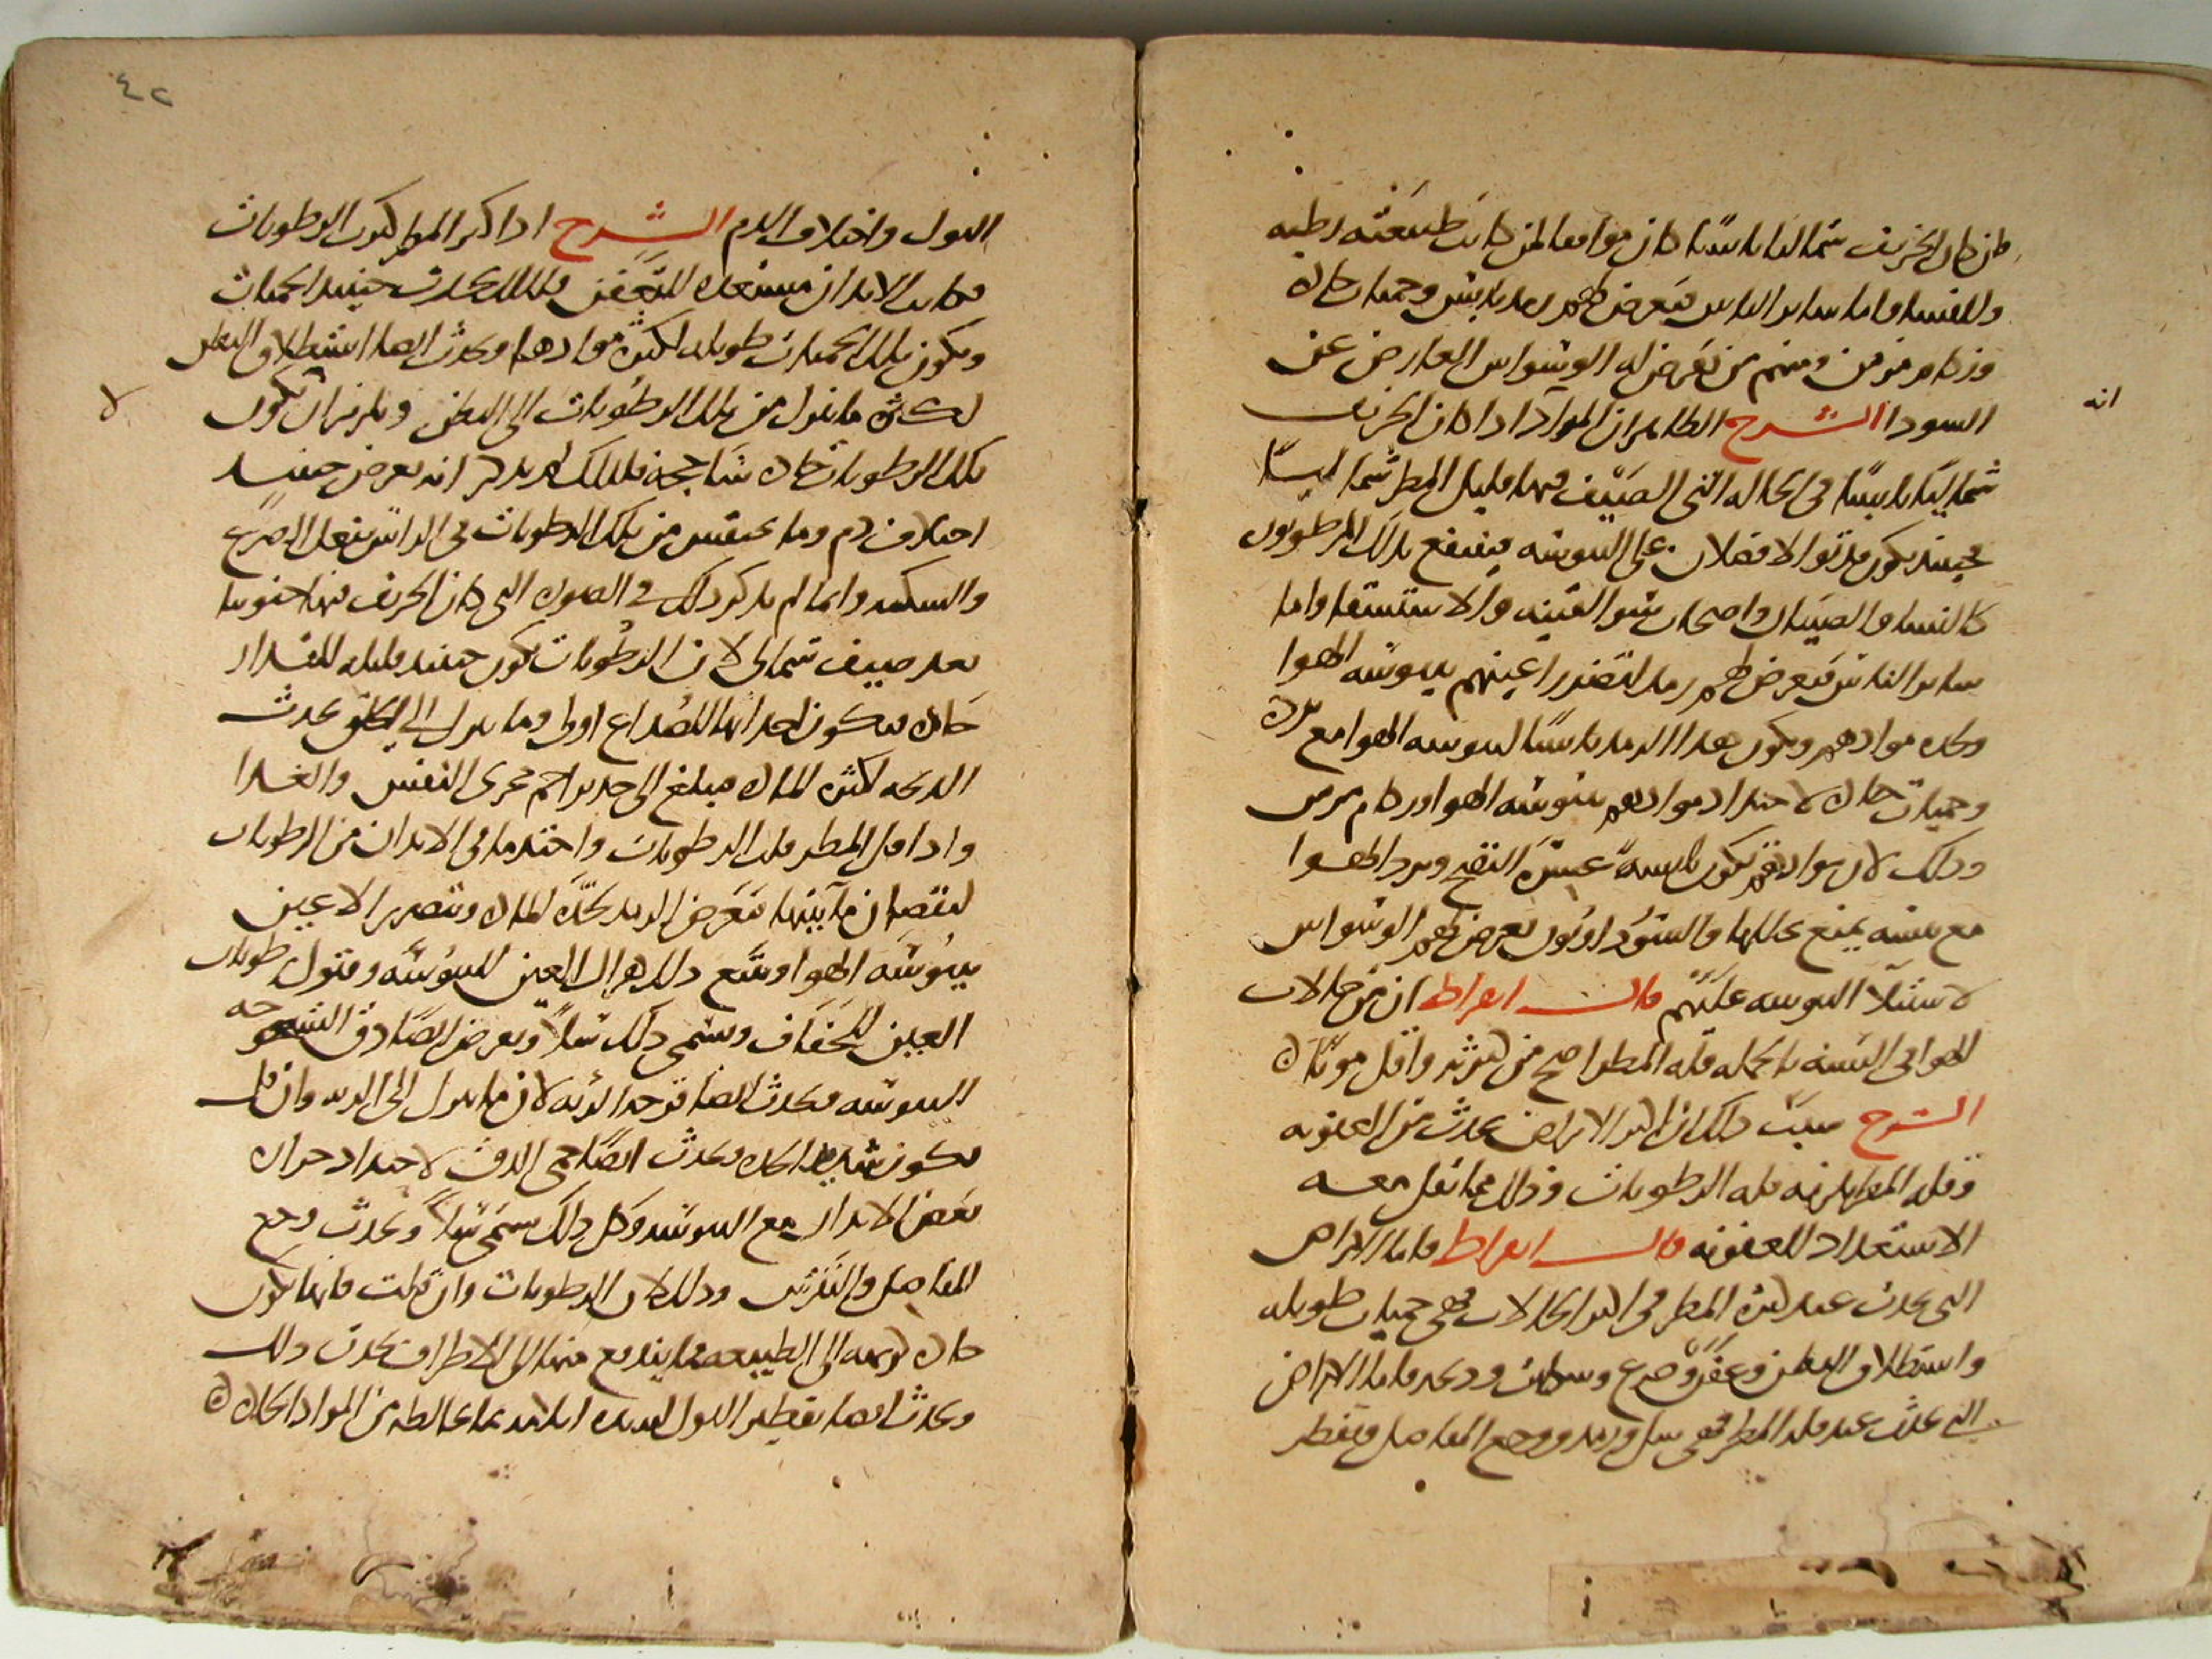 فان كان الخريف شماليا يابسا كان موافقا لمن كانت طبيعته رطبه
وللنسا واما ساير الناس فيعرض لهم رمد يابس وحميات حاده
وزكام مزمن ومنهم من يعرض له الوسواس العارض عن
السودا الشرح الظاهر ان المراد اذا كان الخريف
انه
شماليا يابسا في الحاله التي الصيف فيها قليل المطر شماليا
فحينئذ يكون قد توالا فصلان على اليبوسه فينتفع بذلك المرطوبون
كالنسا والصبيان واصحاب سو القنيه والاستسقا واما
ساير الناس فيعرض لهم رمد لتضرر اعينهم بيبوسه الهوا
وحده موادهم ويكون هذا الرمد يابسا ليبوسه الهوا مع برده
وحميات حاده لاحتداد موادهم بيبوسه الهوا وزكام مزمن
وذلك لان موادهم تكون يابسه عسره النضج وبرد الهوا
مع يبسه يمنع تحللها والسوداويون يعرض لهم الوسواس
لاستيلا اليبوسه عليهم قال ابقراط ان من حالات
الهوا في السنه بالجمله قله المطر اصح من كثرته واقل موتا
الشرح سبب ذلك ان اكثر الامراض يحدث من العفونه
وقله المطر يلزمه قله الرطوبات وذلك مما يقل معه
الاستعداد للعفونه قال ابقراط فاما الامراض
التي تحدث عند كثره المطر في اكثر الحالات فهي حميات طويله
واستطلاق البطن وعفن وصرع وسكات وذبحه فاما الامراض
التي تحدث عند قله المطر فهي سل ورمد ووجع المفاصل وتقطير
٤٢
البول واختلاف الدم الشرح اذا كثر المطر كثرت الرطوبات
فكانت الابدان مستعده للتعفن فلذلك يحدث حينئذ الحميات
وتكون تلك الحميات طويله لكثره موادها ويحدث ايضا استطلاق البطن
لكثره ما ينزل من تلك الرطوبات الى البطن ويلزم ان تكون
لا
تلك الرطوبات حاده ساحجه فلذلك لم يذكر انه يعرض حينئذ
اختلاف دم وما يحتبس من تلك الرطوبات في الراس يفعل الصرع
والسكته وانما لم يذكر ذلك في الصوره التي كان الخريف فيها جنوبيا
بعد صيف شمالي لان الرطوبات تكون حينئذ قليله المقدار
حاده فيكون احداثها للصداع اولى وما ينزل الى الحلق يحدث
الذبحه لكثره الماده فيبلغ الى حد يزاحم مجرى النفس والغذا
واذا قل المطر قلت الرطوبات واحتد ما في الابدان من الرطوبات
لنقصان مآئيتها فيعرض الرمد لحده الماده وتضرر الاعين
بيبوسه الهوا ويتبع ذلك هزال العين لليبوسه وقبول رطوبات
العين للجفاف ويسمى ذلك سلا ويعرض الصادق الشيخوخه
اليبوسه ويحدث ايضا قرحه الرئه لان ما ينزل الى الريه وان قل
يكون شديد الحده ويحدث ايضا حمى الدق لاحتداد حراره
بعض الابدان مع اليبوسه وكل ذلك يسمى سلا ويحدث وجع
المفاصل والنقرس وذلك لان الرطوبات وان قلت فانها تكون
حاده كريهه الى الطبيعه فما يندفع منها الى الاطراف يحدث ذلك
ويحدث ايضا تقطير البول لحدته بما يخالطه من المواد الحاده